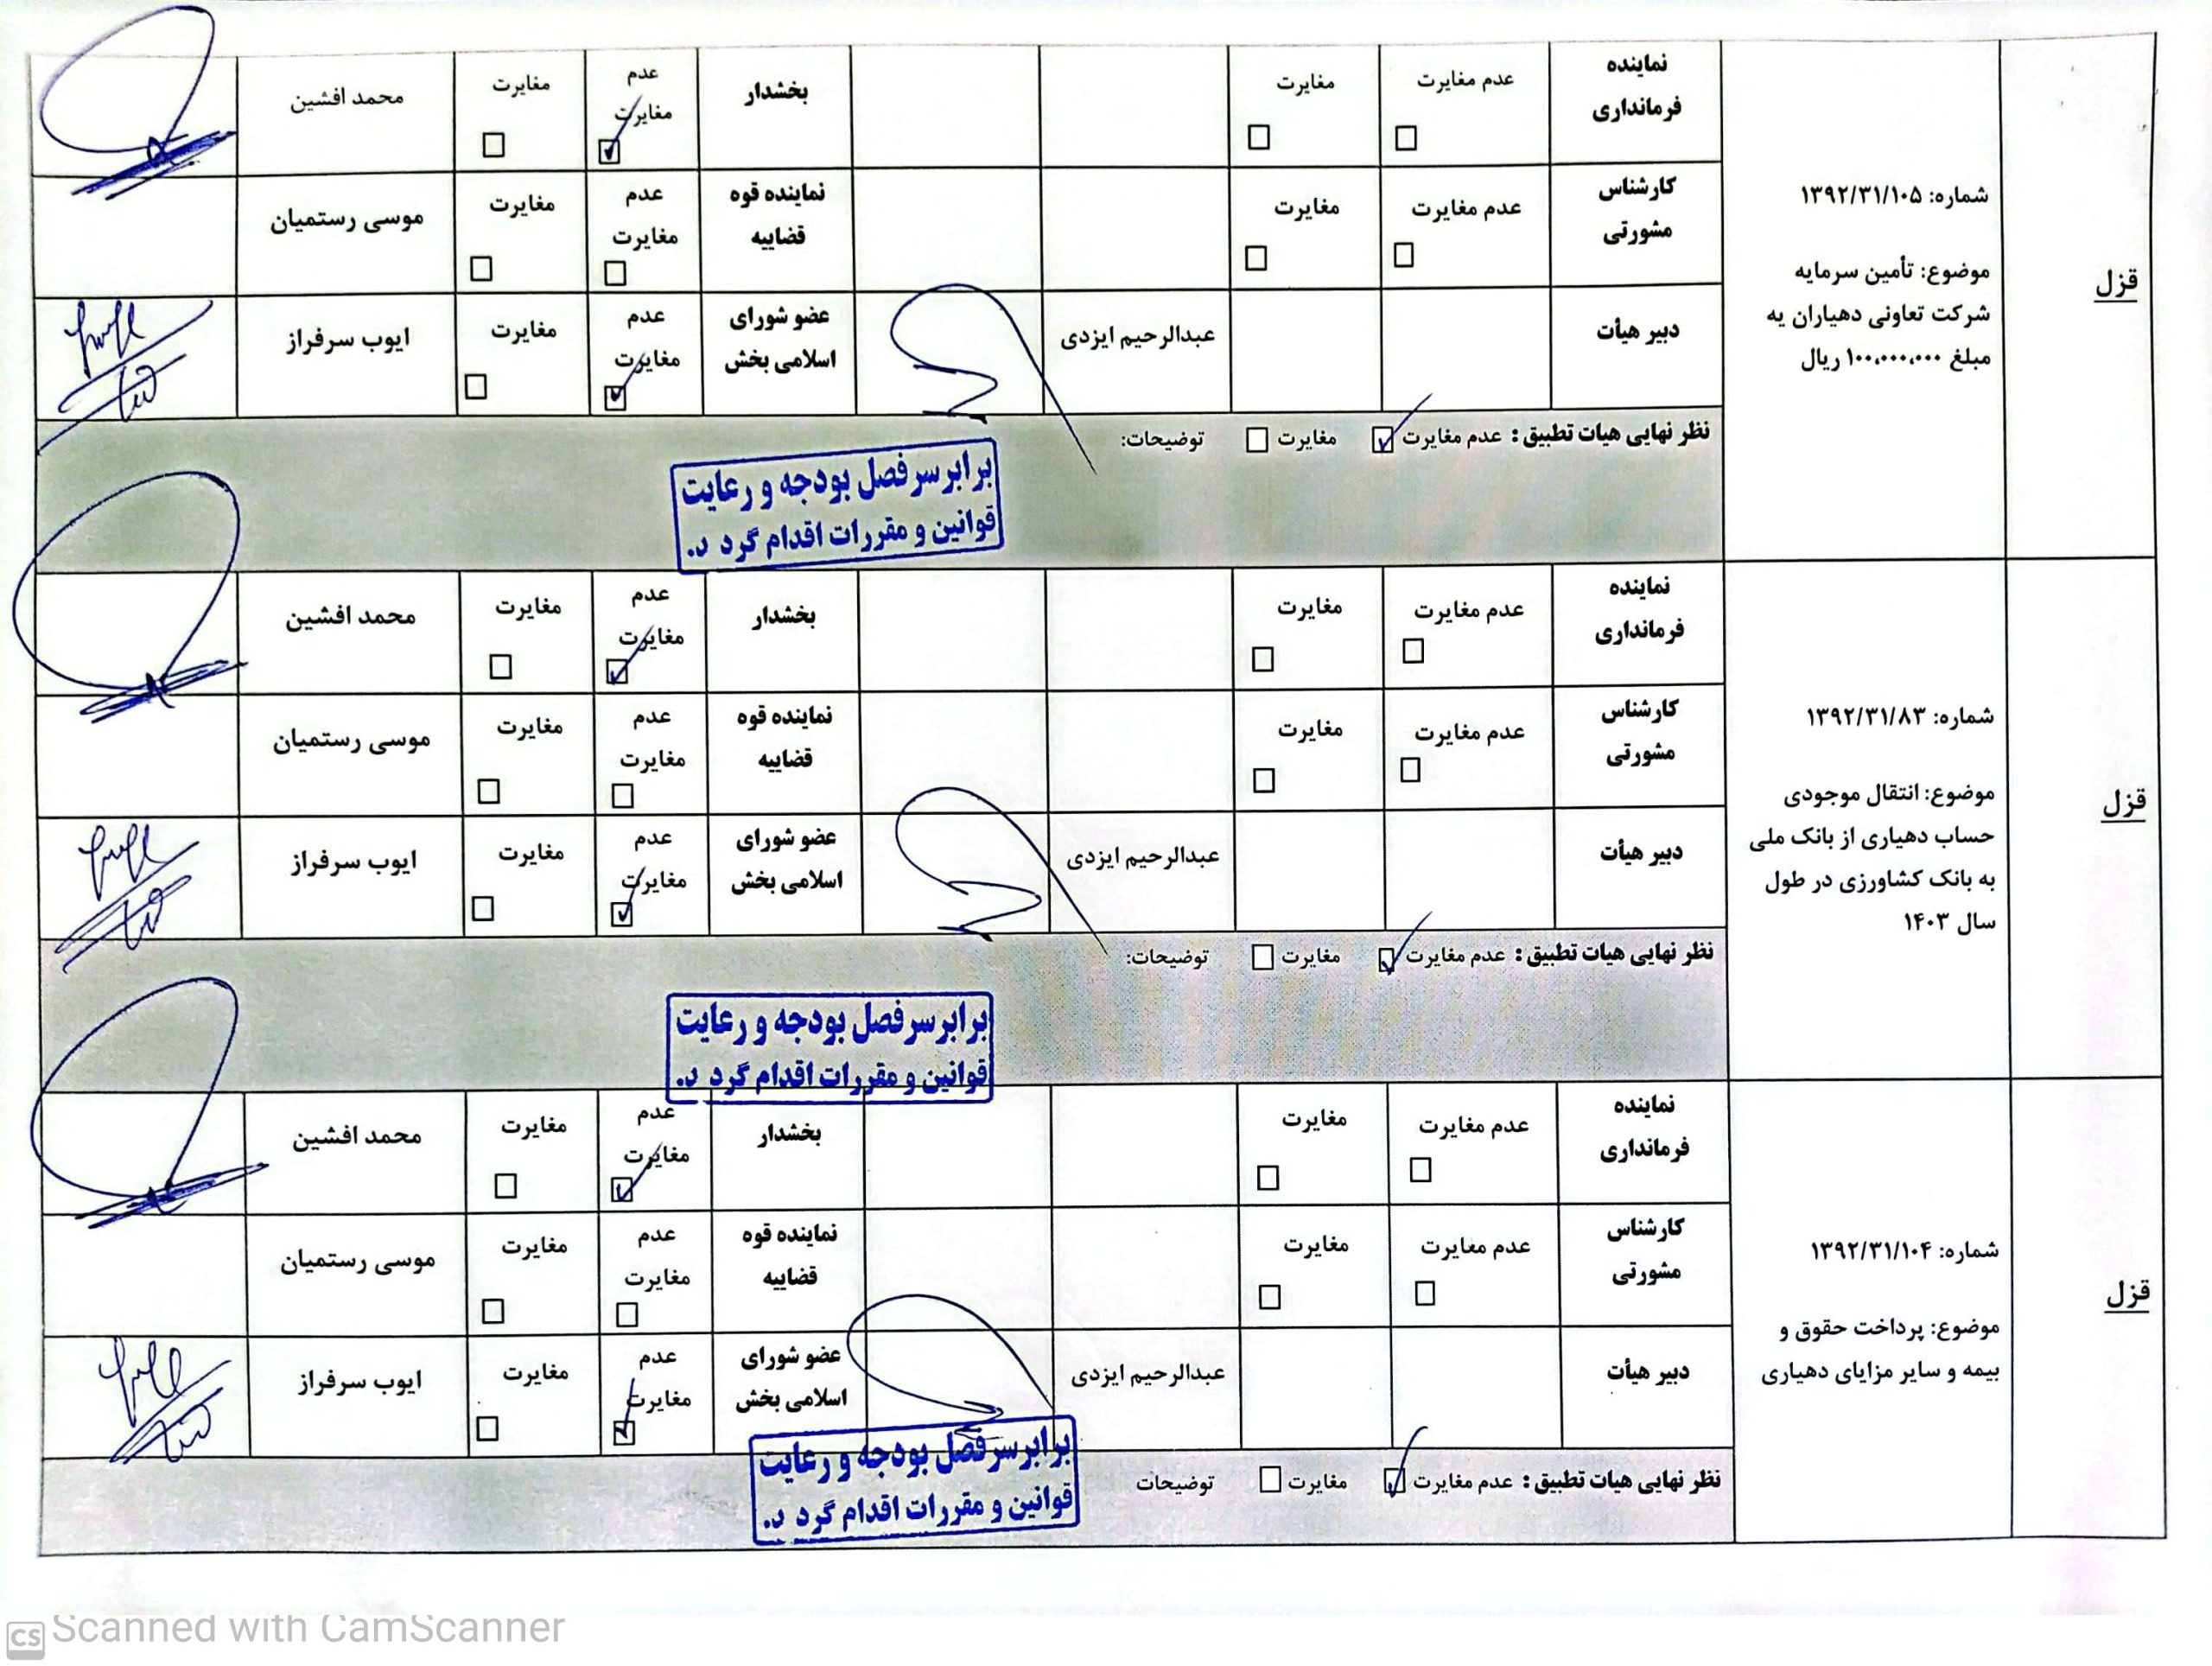 قزل
شماره: ۱۳۹۲/۳۱/۱۰۵
موضوع: تأمین سرمایه
شرکت تعاونی دهیاران یه
مبلغ ۱۰۰،۰۰۰،۰۰۰ ریال
نماینده
فرمانداری
عدم مغایرت
مغایرت
بخشدار
عدم
مغایرت
مغایرت
محمد افشین
کارشناس
مشورتی
عدم مغایرت
مغایرت
نماینده قوه
قضاییه
عدم
مغایرت
مغایرت
موسی رستمیان
دبیر هیأت
عبدالرحیم ایزدی
عضو شورای
اسلامی بخش
عدم
مغایرت
مغایرت
ایوب سرفراز
نظر نهایی هیات تطبیق : عدم مغایرت مغایرت توضیحات:
برابر سرفصل بودجه و رعایت
قوانین و مقررات اقدام گرد د.
قزل
شماره: ۱۳۹۲/۳۱/۸۳
موضوع: انتقال موجودی
حساب دهیاری از بانک ملی
به بانک کشاورزی در طول
سال ۱۴۰۳
نماینده
فرمانداری
عدم مغایرت
مغایرت
بخشدار
عدم
مغایرت
مغایرت
محمد افشین
کارشناس
مشورتی
عدم مغایرت
مغایرت
نماینده قوه
قضاییه
عدم
مغایرت
مغایرت
موسی رستمیان
دبیر هیأت
عبدالرحیم ایزدی
عضو شورای
اسلامی بخش
عدم
مغایرت
مغایرت
ایوب سرفراز
نظر نهایی هیات تطبیق : عدم مغایرت مغایرت توضیحات:
برابر سرفصل بودجه و رعایت
قوانین و مقررات اقدام گرد د.
قزل
شماره: ۱۳۹۲/۳۱/۱۰۴
موضوع: پرداخت حقوق و
بیمه و سایر مزایای دهیاری
نماینده
فرمانداری
عدم مغایرت
مغایرت
بخشدار
عدم
مغایرت
مغایرت
محمد افشین
کارشناس
مشورتی
عدم مغایرت
مغایرت
نماینده قوه
قضاییه
عدم
مغایرت
مغایرت
موسی رستمیان
دبیر هیأت
عبدالرحیم ایزدی
عضو شورای
اسلامی بخش
عدم
مغایرت
مغایرت
ایوب سرفراز
نظر نهایی هیات تطبیق : عدم مغایرت مغایرت توضیحات
برابر سرفصل بودجه و رعایت
قوانین و مقررات اقدام گرد د.
CS Scanned with CamScanner